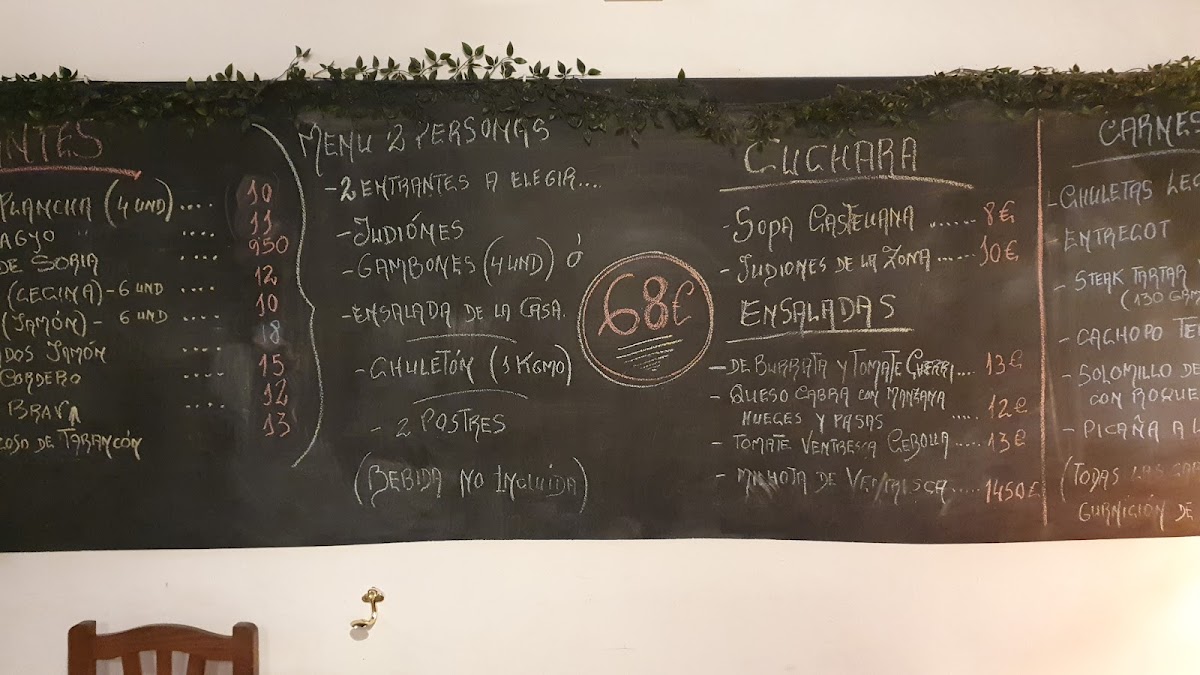 NTES
PLANCHA (4 UND).... 10
AGYO " .... 11
DE SORIA .... 950
(CECINA) - 6 UND .... 12
(JAMÓN) - 6 UND .... 10
DOS JAMÓN .... 18
CORDERO .... 15
BRAVA .... 12
COSO DE TARANCÓN 13
MENU 2 PERSONAS
- 2 ENTRANTES A ELEGIR....
- JUDIÓNES
- GAMBONES (4 UND) Ó
- ENSALADA DE LA CASA.
- CHULETÓN (1 KGMO)
- 2 POSTRES
(BEBIDA NO INCLUIDA)
68€
CUCHARA
- SOPA CASTELLANA ...... 8€
- JUDIONES DE LA ZONA ...... 10€
ENSALADAS
- DE BURRATA Y TOMATE CHERRI.... 13€
- QUESO CABRA CON MANZANA
NUECES Y PASAS .... 12€
- TOMATE VENTRESCA CEBOLLA .... 13€
- DE VENTRESCA..... 1450€
CARNES
- CHULETAS LEC
- ENTRECOT
- STEAK TARTAR
(130 GRA
- CACHOPO TER
- SOLOMILLO DE
CON ROQUE
- PICAÑA A L
(TODAS LAS CAR
GURNICIÓN DE